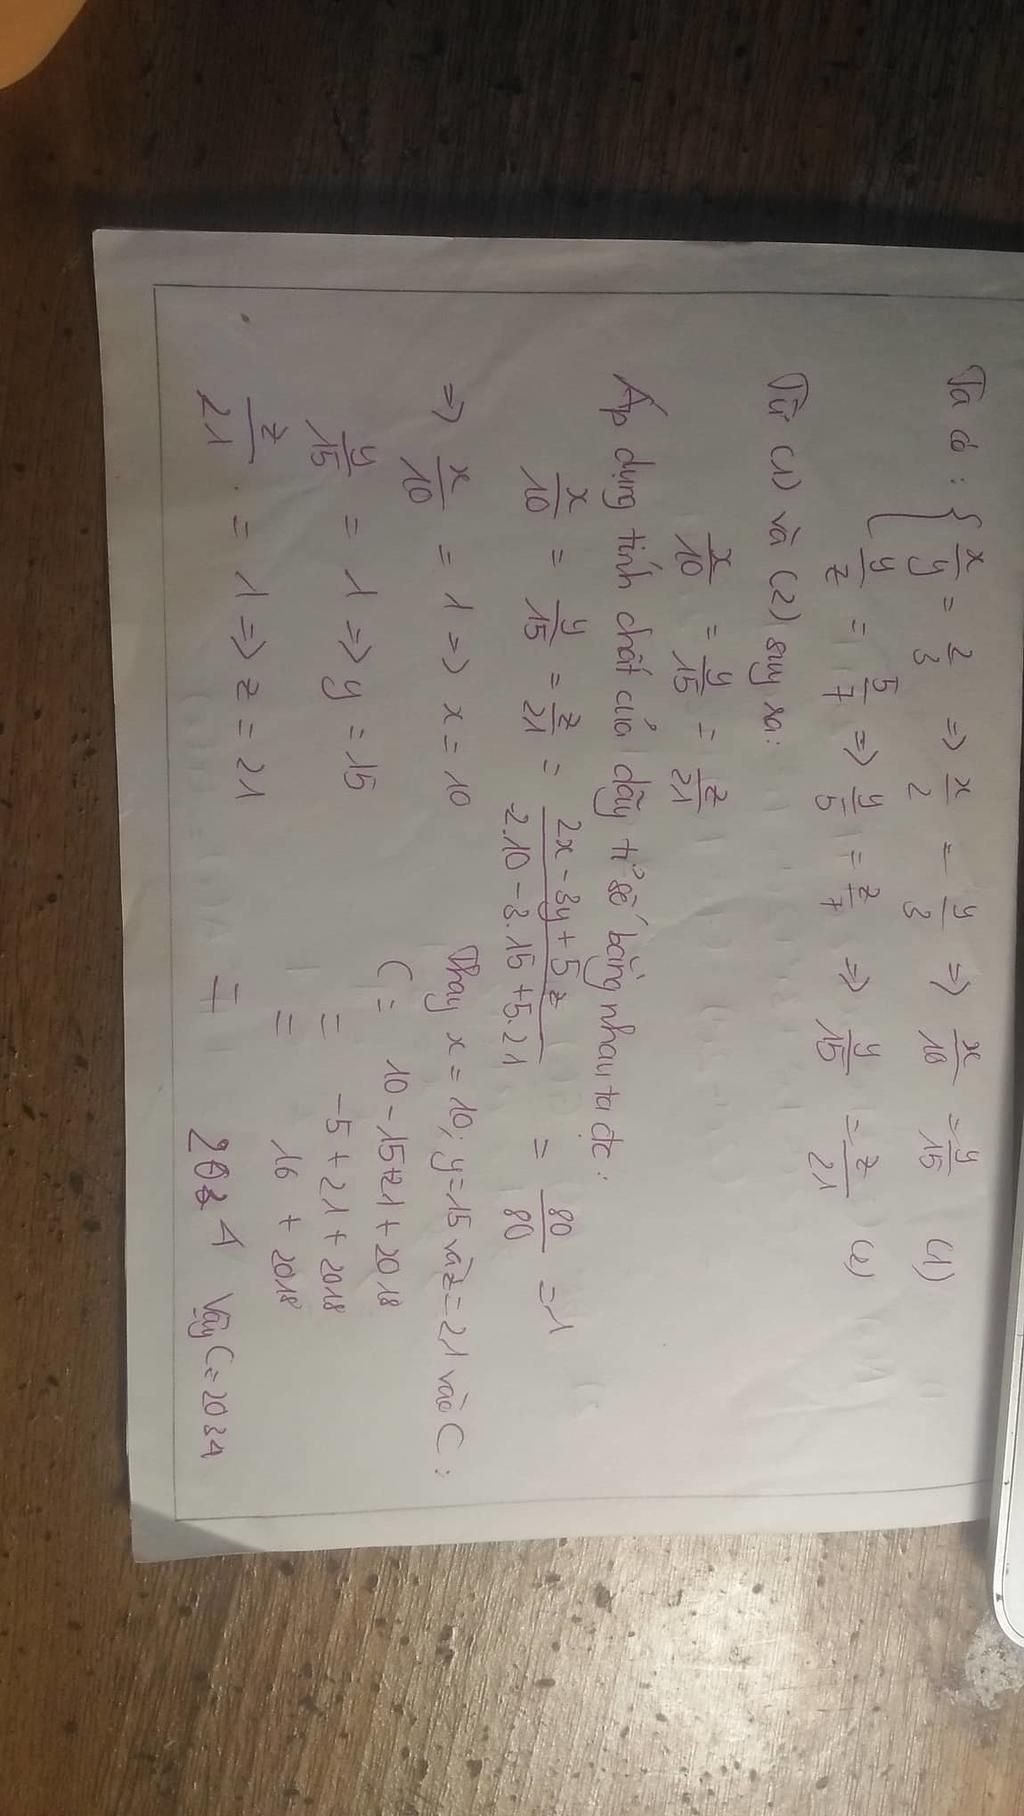 Ta có : { x/y = 2/3 => x/2 = y/3 => x/10 = y/15 (1)
y/z = 5/7 => y/5 = z/7 => y/15 = z/21 (2)
Từ (1) và (2) suy ra:
x/10 = y/15 = z/21
Áp dụng tính chất của dãy tỉ số bằng nhau ta đc :
x/10 = y/15 = z/21 = 2x - 3y + 5z / 2.10 - 3.15 + 5.21 = 80/80 = 1
=> x/10 = 1 => x = 10
y/15 = 1 => y = 15
z/21 = 1 => z = 21
Thay x = 10; y = 15 và z = 21 vào C :
C = 10 - 15 + 21 + 2018
= -5 + 21 + 2018
= 16 + 2018
= 2034 Vậy C = 2034